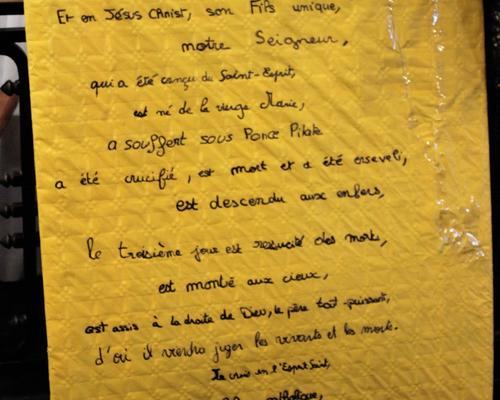 Et en Jésus Christ, son Fils unique,
notre Seigneur,
qui a été conçu du Saint-Esprit,
est né de la vierge Marie,
a souffert sous Ponce Pilate
a été crucifié, est mort et a été enseveli,
est descendu aux enfers,
le troisième jour est ressuscité des morts,
est monté aux cieux,
est assis à la droite de Dieu, le père tout-puissant,
d'où il viendra juger les vivants et les morts.
Je crois en l'Esprit Saint,
catholique,